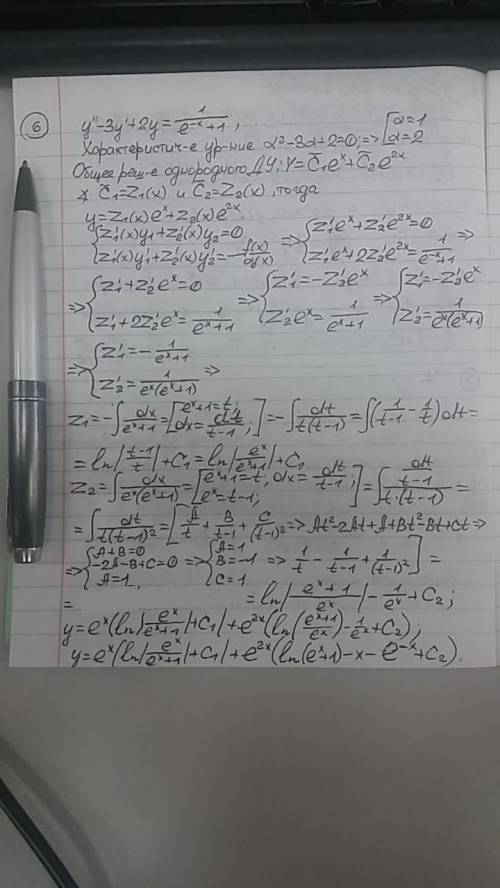 6
y''-3y'+2y=1/(e^{-x}+1);
Характеристич-е ур-ние α²-3α+2=0;=>[α=1 α=2
Общее реш-е однородного ДУ: Y=C̄₁e^x+C̄₂e^{2x}
∢ C̄₁=Z₁(x) и C̄₂=Z₂(x), тогда
y=Z₁(x)e^x+Z₂(x)e^{2x}
{Z₁'(x)y₁+Z₂'(x)y₂=0 =>{Z₁'e^x+Z₂'e^{2x}=0
{Z₁'(x)y₁'+Z₂'(x)y₂'=f(x)/a₀(x) {Z₁'e^x+2Z₂'e^{2x}=1/(e^{-x}+1) =>
=>{Z₁'+Z₂'e^x=0 =>{Z₁'=-Z₂'e^x =>{Z₁'=-Z₂'e^x
{Z₁'+2Z₂'e^x=1/(e^x+1) {Z₂'e^x=1/(e^x+1) {Z₂'=1/(e^x(e^x+1))
=>{Z₁'=-1/(e^x+1)
{Z₂'=1/(e^x(e^x+1)) =>
Z₁=-∫dx/(e^x+1)=[e^x+1=t; dx=dt/(t-1);]=-∫dt/(t(t-1))=∫(1/t-1/(t-1))dt=
=ln|(t-1)/t|+C₁=ln|e^x/(e^x+1)|+C₁
Z₂=∫dx/(e^x(e^x+1))=[e^x+1=t, dx=dt/(t-1); e^x=t-1;]=∫(dt/(t-1))/(t·(t-1))=
=∫dt/(t(t-1)²)=[A/t+B/(t-1)+C/(t-1)²=>At²-2At+A+Bt²-Bt+Ct=>
=>{A+B=0 -2A-B+C=0 A=1 =>{A=1 B=-1 C=1 =>1/t-1/(t-1)+1/(t-1)²]=
= =ln|(e^x+1)/e^x|-1/e^x+C₂;
y=e^x(ln|e^x/(e^x+1)|+C₁)+e^{2x}(ln|(e^x+1)/e^x|-1/e^x+C₂);
y=e^x(ln|e^x/(e^x+1)|+C₁)+e^{2x}(ln(e^x+1)-x-e^{-x}+C₂).